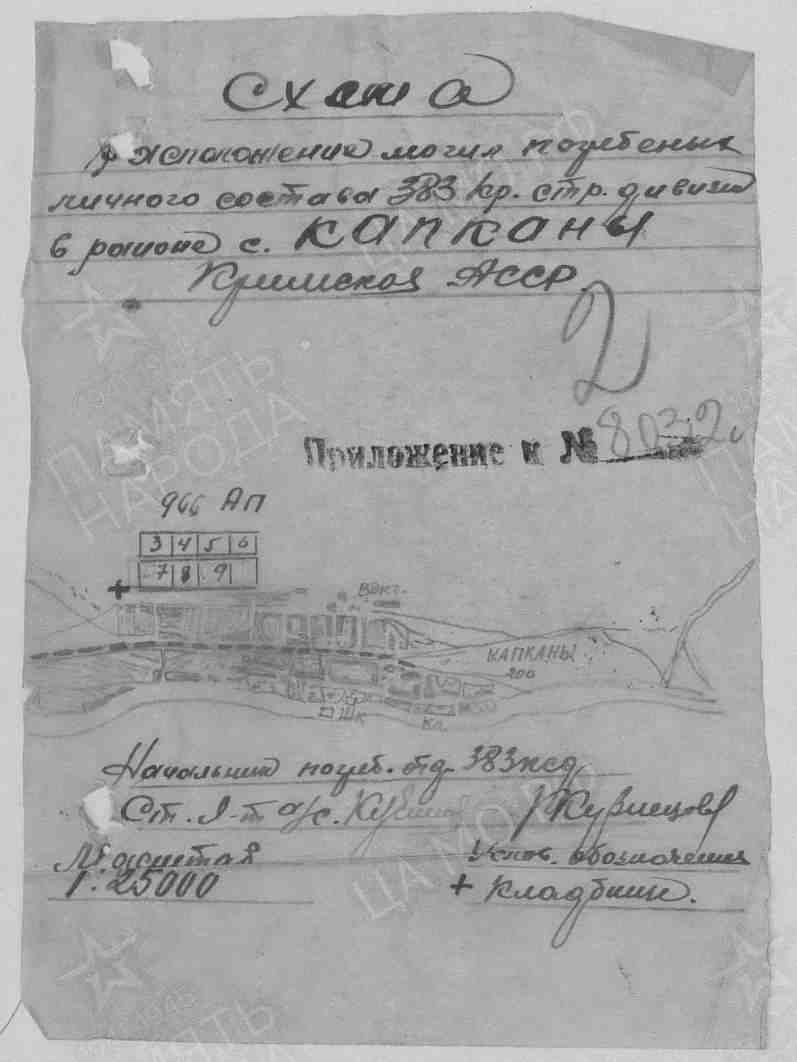 Схема
расположение могил погребеных
личного состава 383 кр. стр. дивизии
в районе с. КАПКАНЫ
Кримская АССР.
2
Приложение к № 8032с
966 АП
3 4 5 6
7 8 9
+
Вокг.
КАПКАНЫ
200
Шк
Кл.
Начальник погреб. отд. 383 ксд
Ст. л-т а/с. Кузнецов
Масштав
Услов. обозначения
1:25000
+ Кладбищи.
ПАМЯТЬ НАРОДА
ЦАМО РФ